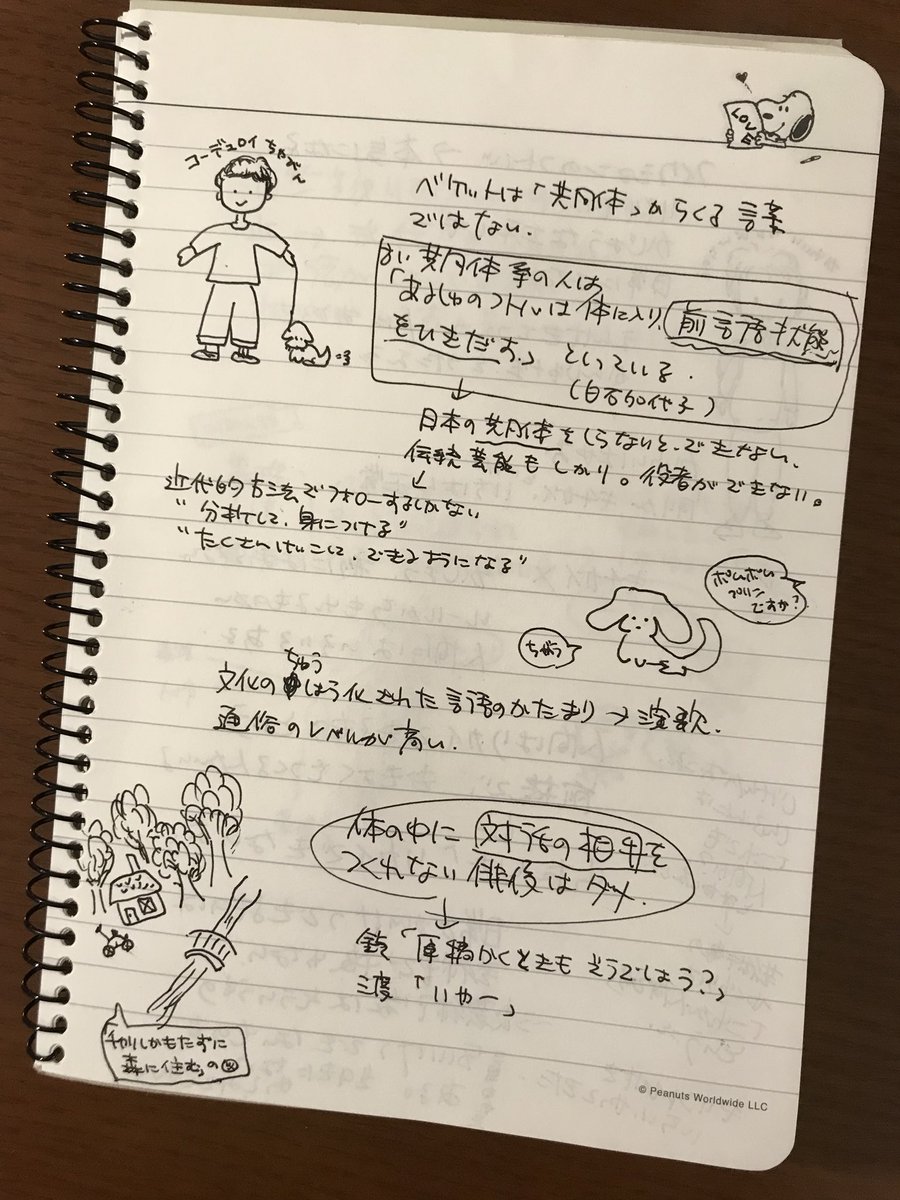 コーデュロイちゃん
ベケットは「共同体」からくる言葉
ではない.
古い共同体系の人は
「あるしゅのコトバは体に入り、前言語状態
をひきだす.」といっている.
(白石加代子)
↓
日本の共同体をしらないと、できない.
伝統芸能もしかり。役者ができない。
↓
近代的方法でフォローするしかない
"分析して、身につける"
"たくさんけいこして、できるようになる"
ポムポム
プリン
ですか?
ちがう
ちゅう
文化のしょう化された言語のかたまり→演歌.
通俗のレベルが高い.
体の中に対話の相手を
つくれない俳優はダメ.
↓
鈴「原稿かくときもそうでしょう?」
渡「いやー」
「チャリしかもたずに
森に住む」の図
© Peanuts Worldwide LLC